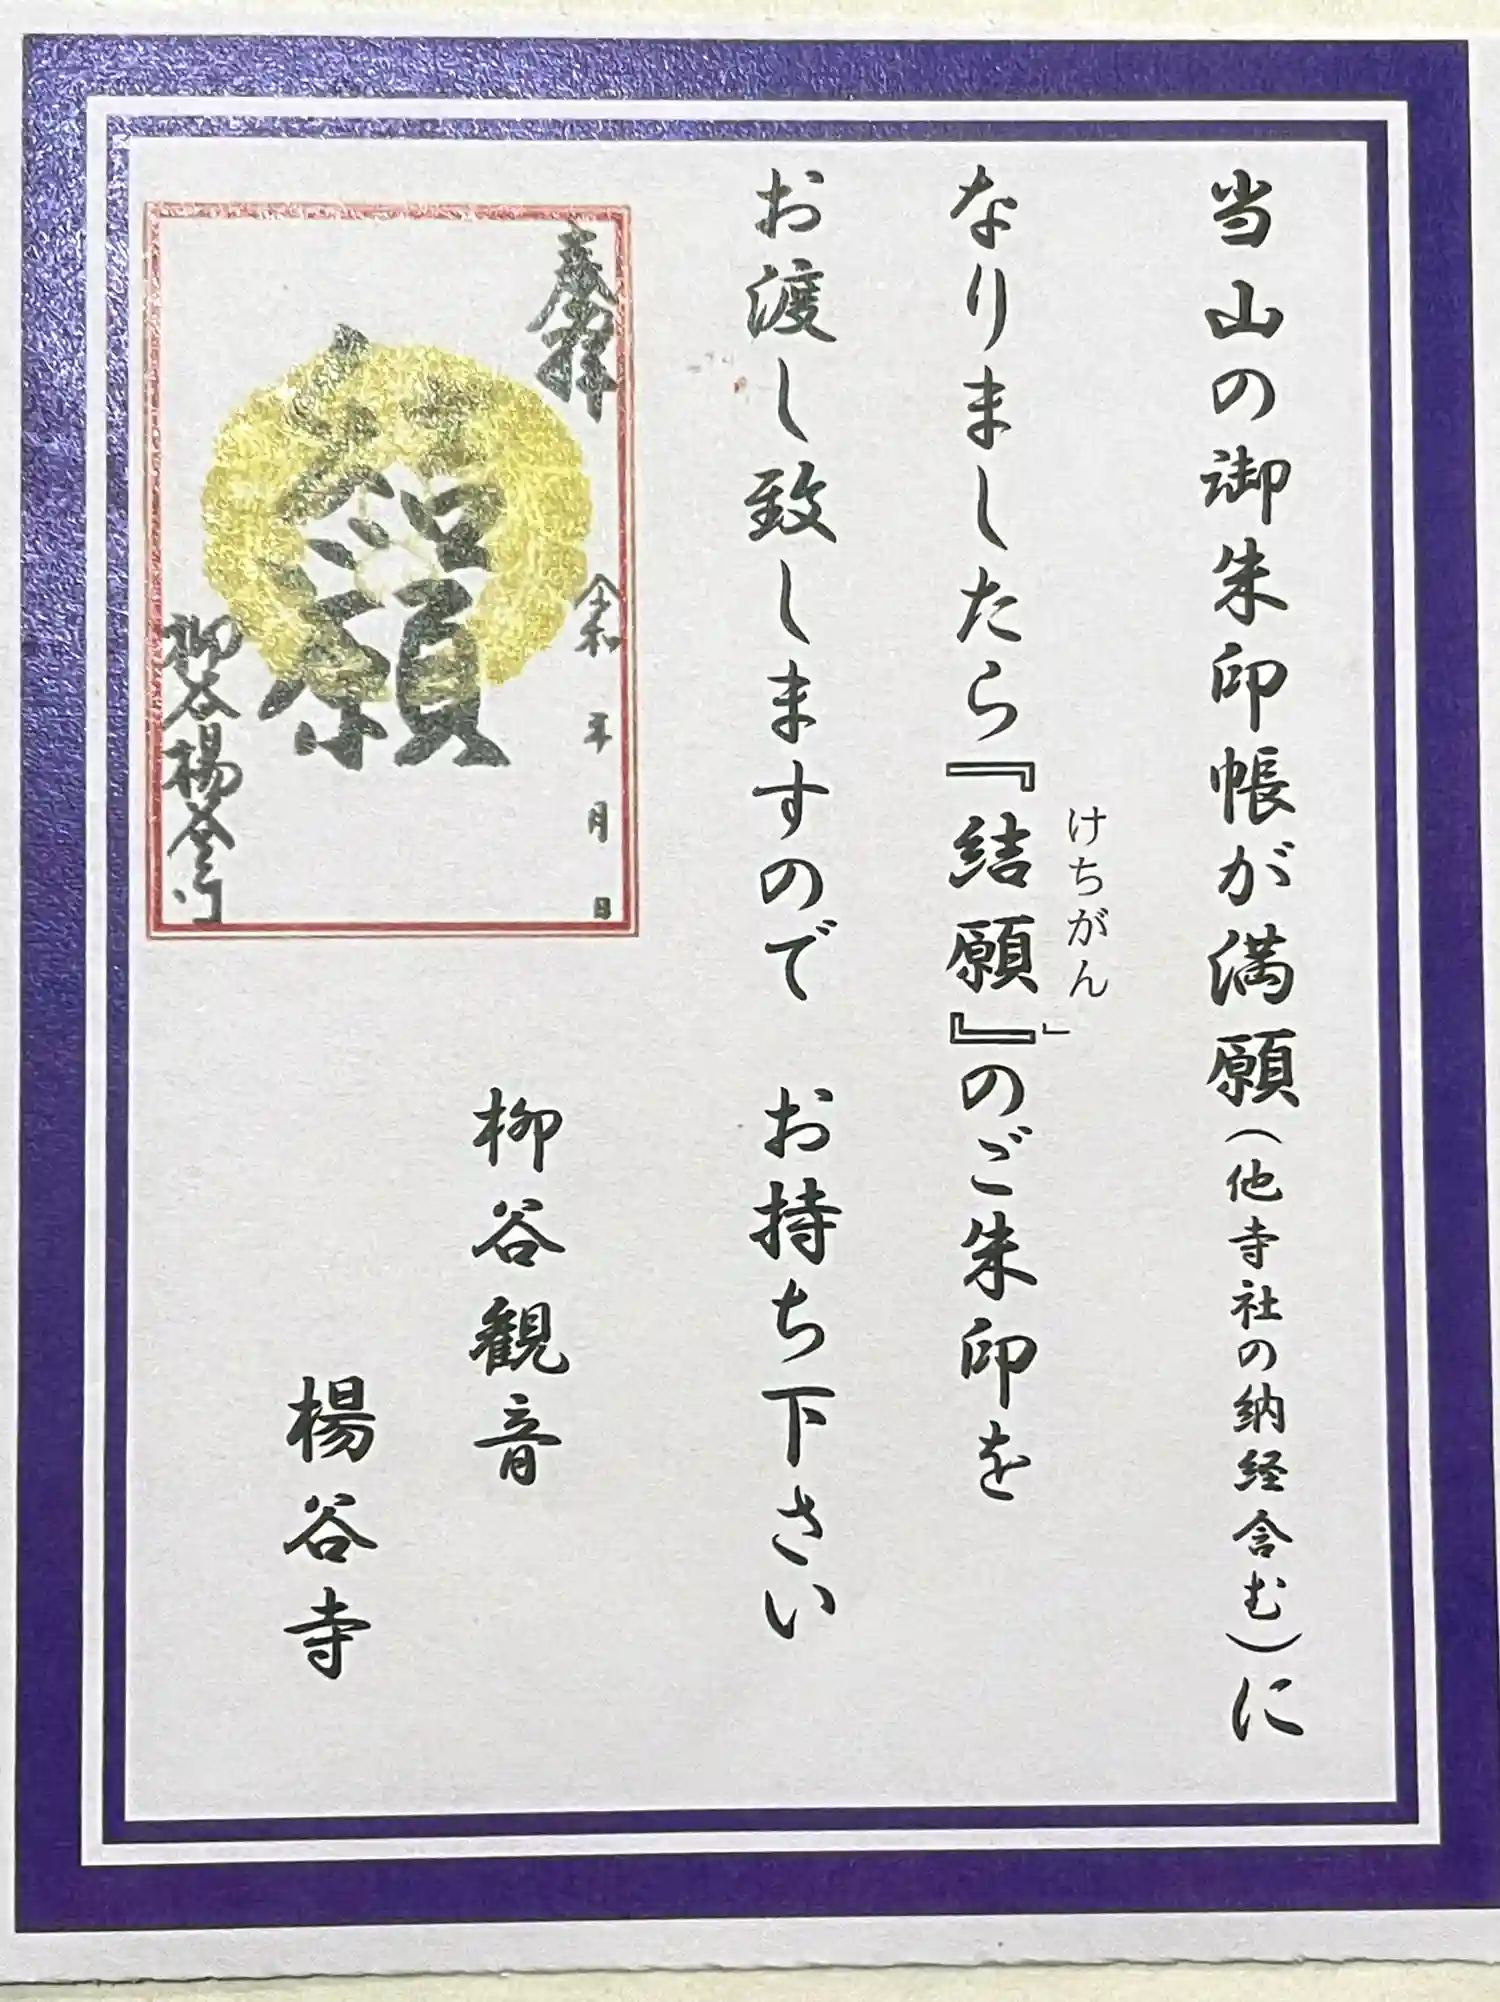 当山の御朱印帳が満願（他寺社の納経含む）に
なりましたら『結願』のご朱印を
けちがん」
お渡し致しますので　お持ち下さい
柳谷観音
楊谷寺
奉拝
令和　年　月　日
結願
柳谷楊谷寺